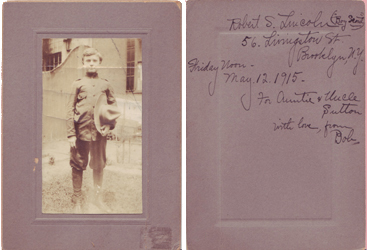 Robert S. Lincoln
56. Livingston St.
Brooklyn, N.Y.
Friday Noon -
May. 12. 1915.
For Auntie & Uncle
Sutton
with love, from
Bob.